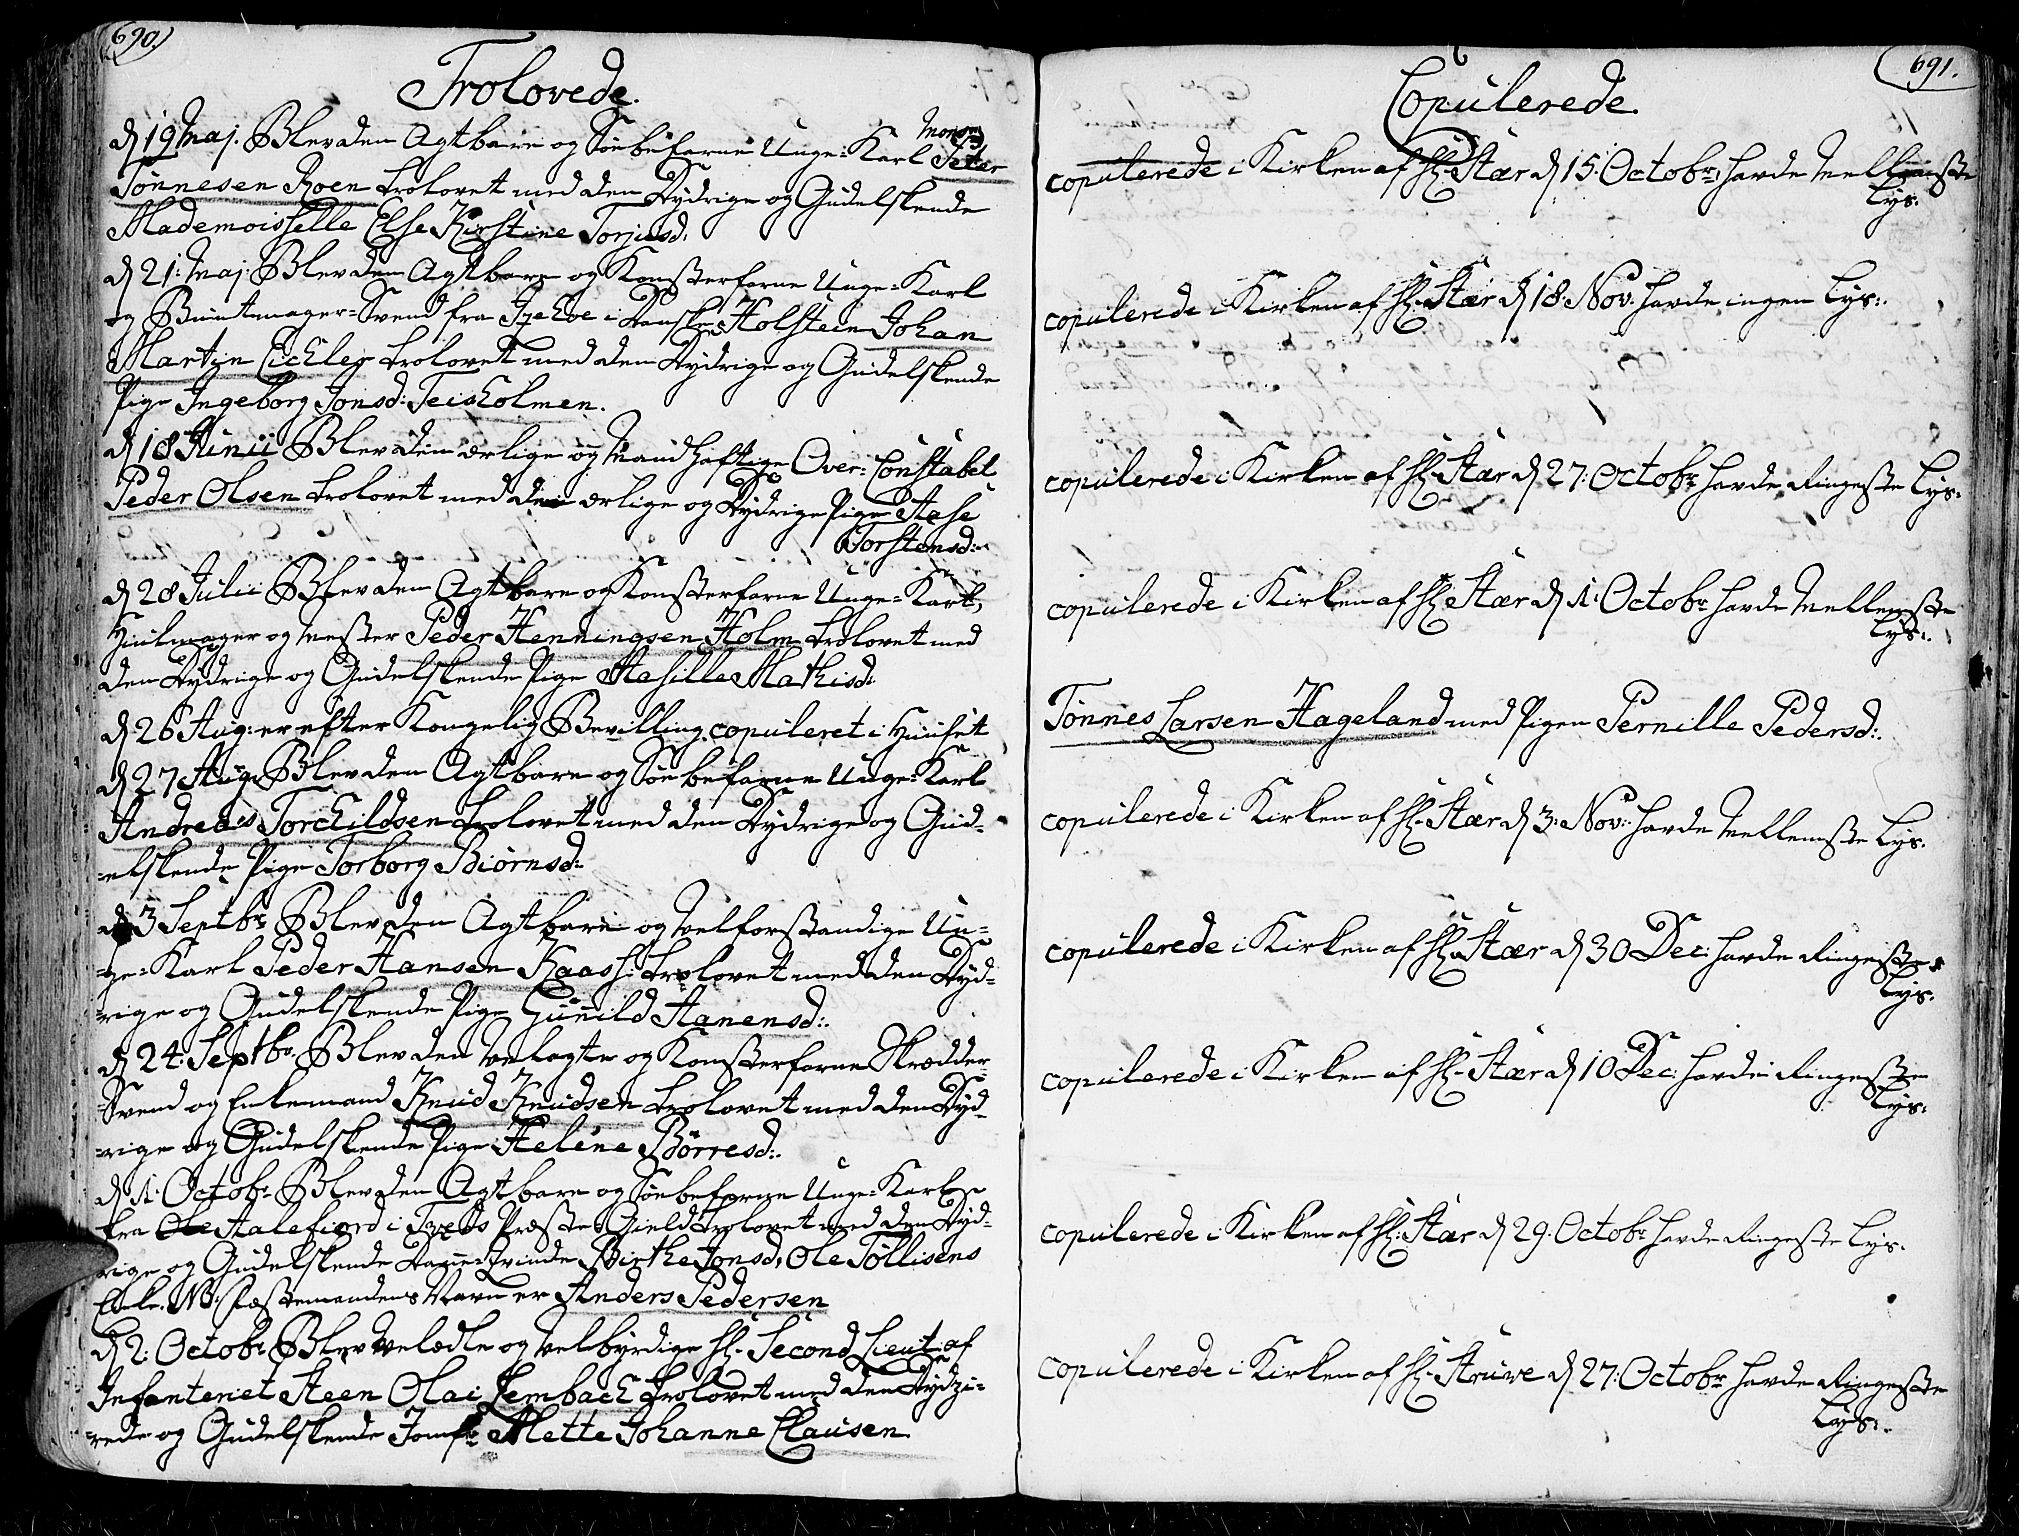 690.
Trolovede.
d 19 Maj. Blev den Agtbare og Søebefarne Unge-Karl Monsr Peter
Tönnesen Roen trolovet med den Dydrige og Gudelskende
Mademoisselle Else Kirstine Torjusd:
d 21: Maj: Blev den Agtbare og Konsterfarne Unge-Karl
og Buntmager-Svend fra Itzehoe i Danske Holstein Johan
Martin Eichler trolovet med den Dydrige og Gudelskende
Pige Ingeborg Jonsd: Teisholmen.
d 18 Junii Blev den ærlige og Mandhaftige Over-Constabel
Peder Olsen trolovet med den ærlige og Dydrige Pige Aase
Torstensd:
d 28 Julii Blev den Agtbare og Konsterfarne Unge-Karl,
Hiulmager og Mester Peder Henningsen Holm trolovet med
den Dydrige og Gudelskende Pige Asille Mathisd:
d 26 Aug: er efter Kongelig Bevilling copuleret i Huuset
d 27 Aug: Blev den Agtbare og Søebefarne Unge-Karl
Andreas Torchildsen trolovet med den Dydrige og Gud-
-elskende Pige Torborg Biörnsd:
d 3 Septbr Blev den Agtbare og Velforstandige Un-
-ge-Karl Peder Hansen Kaas trolovet med den Dyd-
-rige og Gudelskende Pige Gunild Hanensd:.
d 24: Septbr. Blev den Velagte og Konsterfarne Skrædder-
-Svend og Enkemand Knud Knudsen trolovet med den Dyd-
-rige og Gudelskende Pige Helene Börresd:.
d 1. Octobr Blev den Agtbare og Søebefarne Unge-Karl
fra Aalefiord i Tveds Præste-Gield trolovet med den Dyd-
-rige og Gudelskende Danne-Qvinde Birthe Jonsd, Ole Töllisens
Enke. NB: Fæstemandens Navn er Anders Pedersen
d 2: Octobr Blev Velædle og Velbyrdige H. Second Lieut: af
Infanteriet Steen Olai Lembach trolovet med den Dydzi-
-rede og Gudelskende Jomfr Mette Johanne Clausen.
691.
Copulerede.
copulerede i Kirken af H. Stær d 15. Octobr, havde Mellemste
Lys.
copulerede i Kirken af H. Stær d 18. Nov: havde ingen Lys:.
copulerede i Kirken af H. Stær d 27: Octobr havde Ringeste Lys:
copulerede i Kirken af H. Stær d 1. Octobr havde Mellemste
Lys:.
Tönnes Larsen Hageland med Pigen Pernille Pedersd:.
copulerede i Kirken af H. Stær d 3: Nov: havde Mellemste Lys.
copulerede i Kirken af H. Stær d 30 Dec: havde Ringeste
Lys.
copulerede i Kirken af H. Stær d 10 Dec: havde Ringeste
Lys:
copulerede i Kirken af H. Stær d 29. Octobr havde Ringeste Lys.
copulerede i Kirken af H. Struve d 27: Octobr havde Ringeste
Lys:.